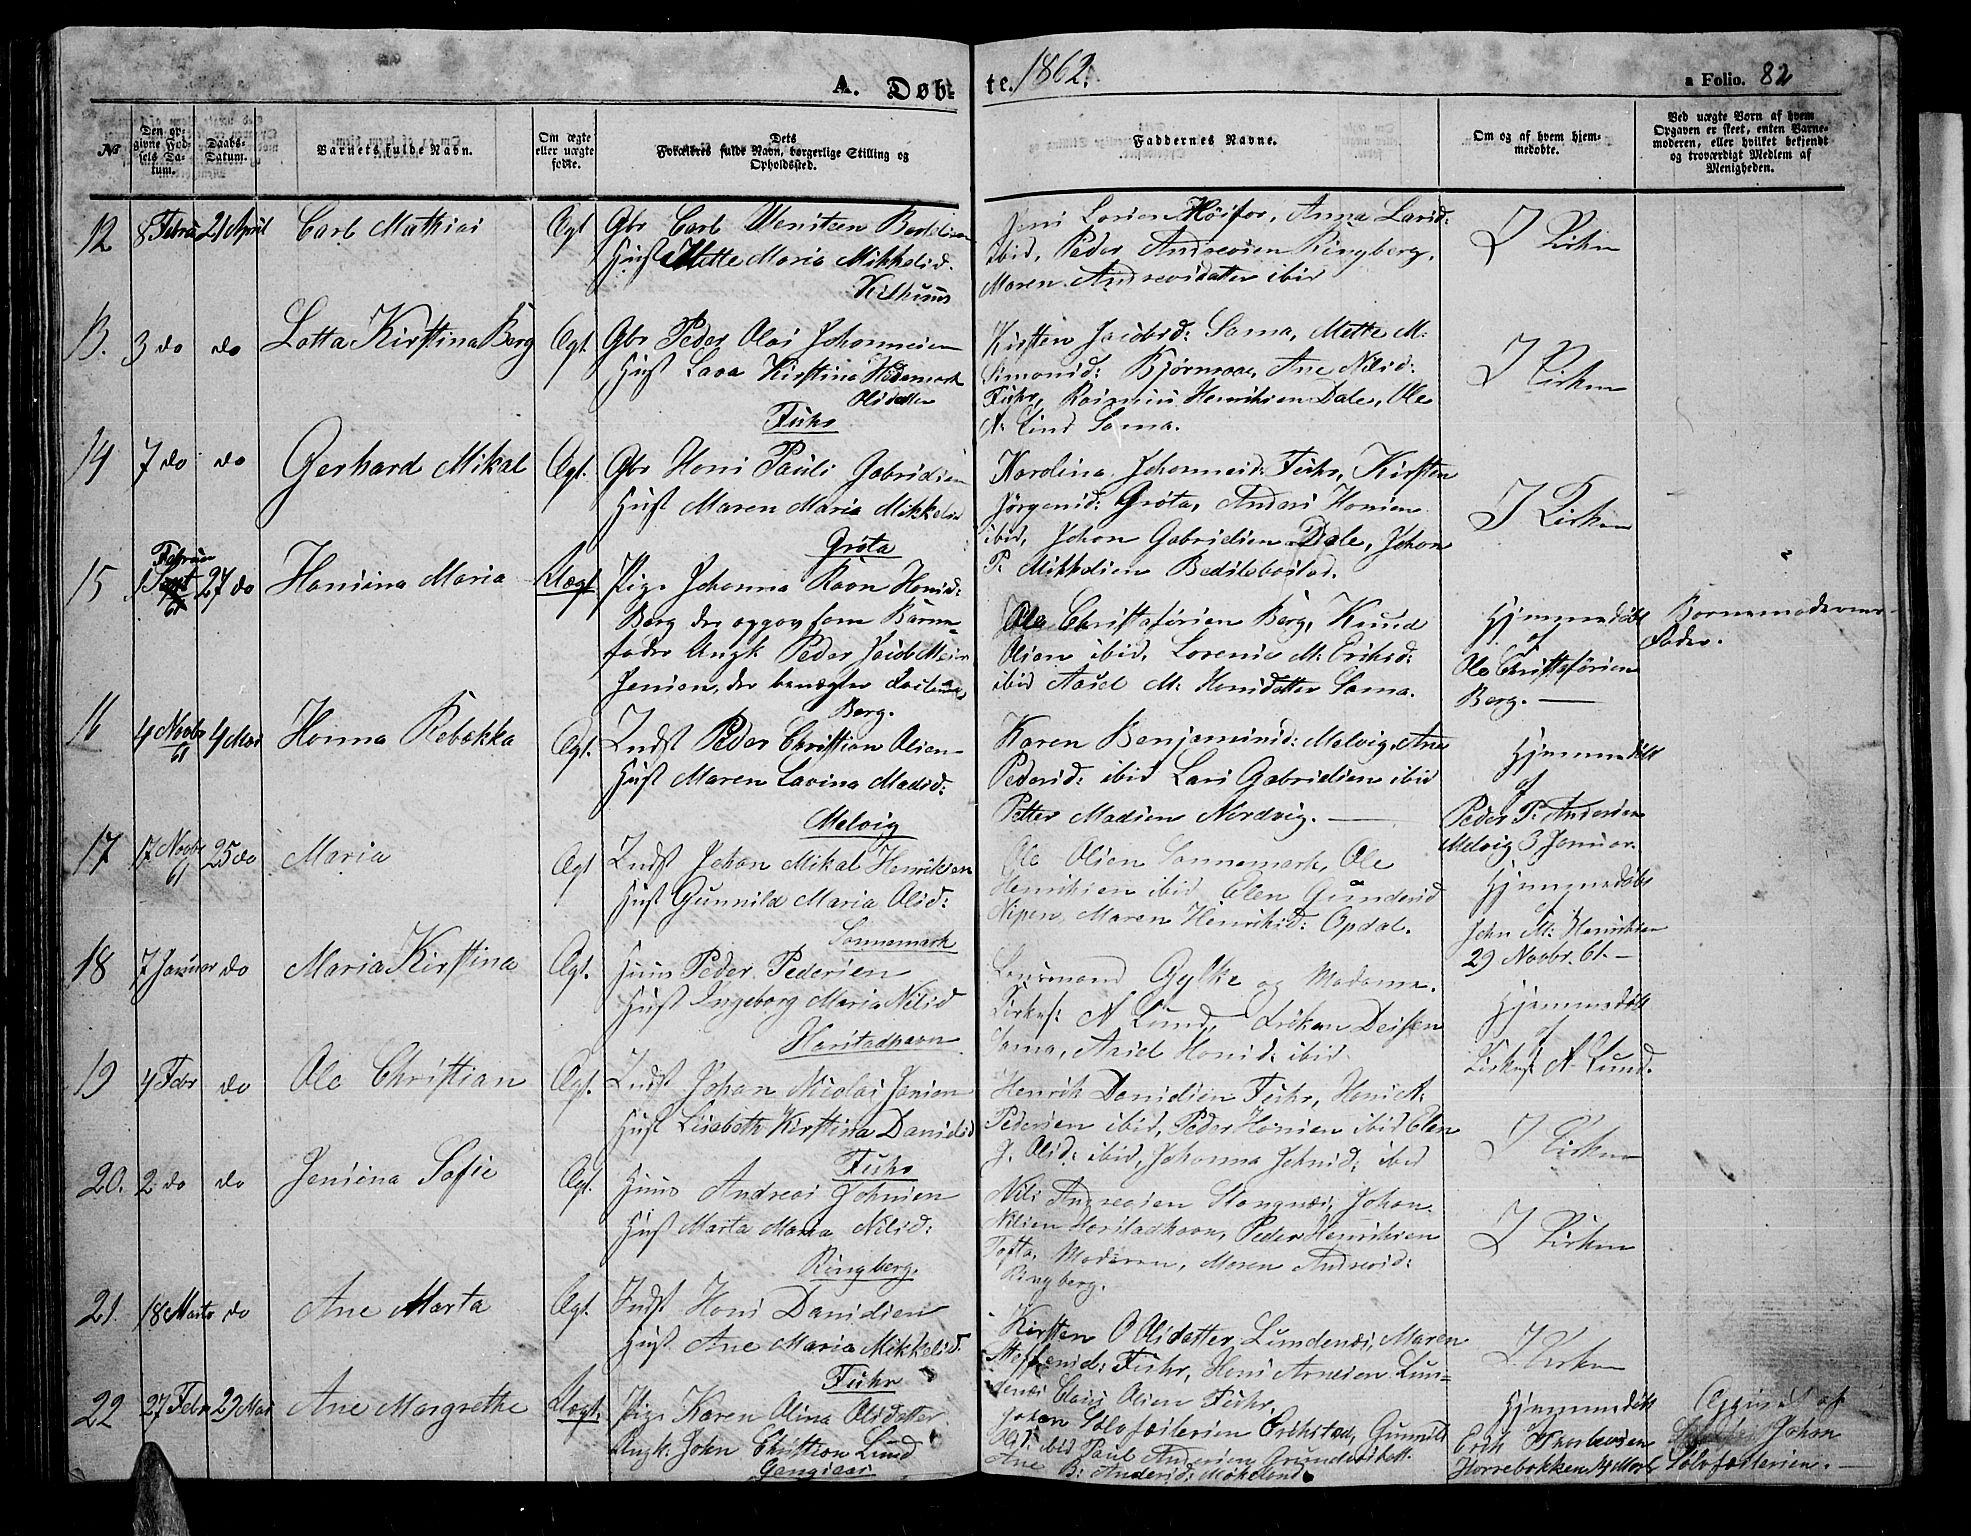 A. Døb- te. 1862. a Folio. 82
№
Den op-
givne Fød-
sels Da-
tum.
Daabs-
Datum.
Barnets fulde Navn.
Om ægte
eller uægte
fødte.
Dets
Forældres fulde Navn, borgerlige Stilling og
Opholdssted.
Faddernes Navne.
Om og af hvem hjem-
medøbte.
Ved uægte Børn af hvem
Opgaven er skeet, enten Barne-
moderen, eller hvilket bekjendt
og troværdigt Medlem af
Menigheden.
12 8 Febru 21 April Carl Mathias Ægt
Gbr Carl
Hust Mette Maria Mikkelsd.
Jens Larsen Anna Larsd:
ibid, Peder Andreasen Ringberg,
Maren Andreasdatter ibid
I Kirken
13. 3 do do Lotta Kirstina Berg Ægt.
Gbr Peder Olai Johannesen
Hust Lava Kirstina Hedemark
Olsdatter
Fuhr
Kirsten Jacobsd: Sama, Mette M:
Simonsd: Bjørnraa, Ane Nilsd:
Fuhr, Rasmus Henriksen Dale, Ole
N: Lind Sama.
I Kirken
14 7 do do Gerhard Mikal Ægt.
Gbr Hans Pauli Gabrielsen
Hust Maren Maria Mikkelsd
Grøta
Karolina Johannesd: Fuhr, Kirsten
Jørgensd: Grøta, Anders Hansen
ibid, Johan Gabrielsen Dale, Johan
P: Mikkelsen
I Kirken
15 1 Februar 61 27 do Hansina Maria Uægt
Pige Johanna Ravn Hansd:
Berg der opgav som Barne-
fader Ungk Peder Jacob
Jensen, der benægter
Berg.
Ole Christofersen Berg, Knud
Olsen ibid, Lorents M: Eriksd:
ibid Aasel M: Hansdatter Sama.
Hjemmedøbt
af
Ole Christofersen
Berg. —
Barnemoderens
Fader.
16 4 Novbr 61 4 Mai Hanna Rebekka Ægt.
Indst Peder Christian Olsen
Hust Maren Lavina Madsd:
Melvig
Karen Benjaminsd: Melvig, Ane
Pedersd: ibid Lars Gabrielsen ibid
Petter Madsen Nordvig. —
Hjemmedøbt
af
Peder P: Andersen
Melvig 3 Januar.
17 17 Novbr 61 25 do Maria Ægt
Indst Johan Mikal Henriksen
Hust Gunnild Maria Olsd:
Sannemark
Ole Olsen Sannemark, Ole
Henriksen ibid Elen Gundersd
Nipen, Maren Henriksd: Opdal.
Hjemmedøbt
af
John M: Henriksen
29 Novbr. 61. —
18 7 Januar do Maria Kirstina Ægt.
Huus Peder Pedersen
Hust Ingeborg Maria Nilsd
Harstadhavn
Lensmand Gylke og Madame.
Kirkes: N Lund,
Sama, Aasel Hansd: ibid.
Hjemmedøbt
af
Kirkes: N Lund.
19 4 Febr do Ole Christian Ægt.
Indst Johan Nicolai Jensen
Hust Lisabeth Kirstina Danielsd
Fuhr
Henrik Danielsen Fuhr, Hans A.
Pedersen ibid, Peder Hansen ibid Elen
J. Olsd: ibid, Johanna Johnsd: ibid
I Kirken
20. 2 do do Jensina Sofie Ægt.
Huus Andreas Johnsen
Hust Marta Maria Nilsd:
Ringberg.
Nils Andreasen Stangnæs, Johan
Nilsen Harstadhavn, Peder Henriksen
Tofta, Moderen, Maren Andreasd:
Ringberg.
I Kirken
21. 18 Marts do Ane Marta Ægt.
Indst Hans Danielsen
Hust Ane Maria Mikkelsd.
Fuhr
Kirsten O Olsdatter Lundenæs, Maren
Steffensd: Fuhr, Hans Arnesen Lun-
denæs Claus Olsen Fuhr.
I Kirken
22 27 Febr 29 Mai Ane Margrethe Uægt.
Pige Karen Olina Olsdatter
Ungk. John Christian Lund
Gangsaas
Johan Sølvfestersen Erikstad, Gunnild
Olsd: ibid Paul Andersen
Ane B: Andersd: Møkeland
Hjemmedøbt
af
Erik
Horrebakken 14 Marts
af
Johan
Sølvfestersen. —